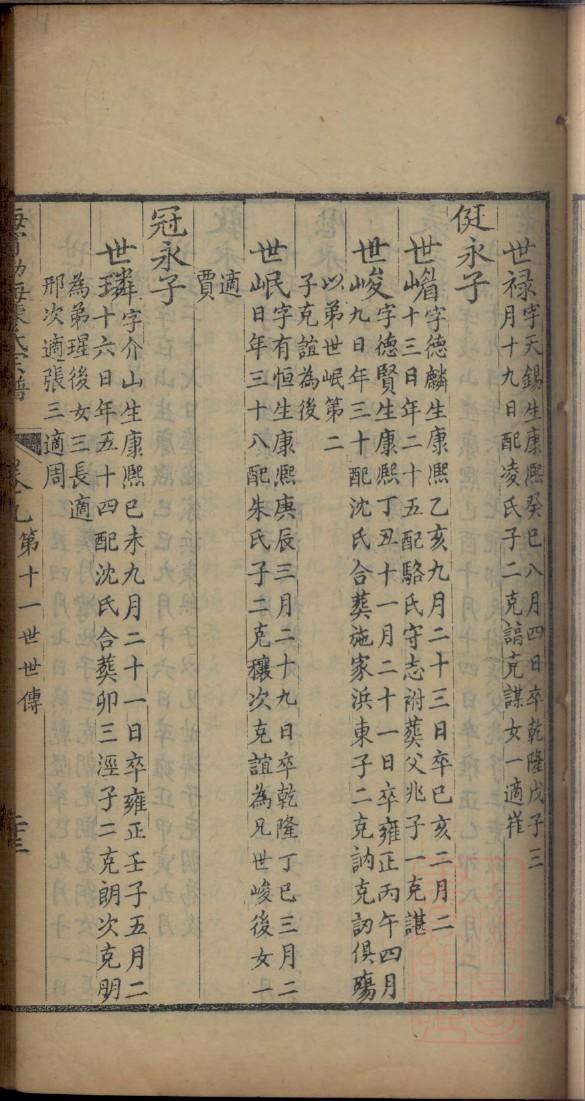 世禄字天錫生康熙癸巳八月四日卒乾隆戊子三
月十九日配凌氏子二克諨克謀女一適崔
侹永子
世嵋字德麟生康熙乙亥九月二十三日卒己亥二月二
十三日年二十五配駱氏守志祔葬父兆子一克諶
世峻字德賢生康熙丁丑十一月二十一日卒雍正丙午四月
九日年三十配沈氏合葬施家浜東子二克訥克訒俱殤
以弟世岷第二
子克誼為後
世岷字有恒生康熙庚辰三月二十九日卒乾隆丁巳三月二
日年三十八配朱氏子二克穰次克誼為兄世峻後女一
適
賈
冠永子
世璘字介山生康熙己未九月二十一日卒雍正壬子五月二
十六日年五十四配沈氏合葬卯三涇子二克朗次克明
為弟瑆後女三長適
邢次適張三適周
海寧勃海陳氏宗譜
卷十九 第十一世世傳
二十三